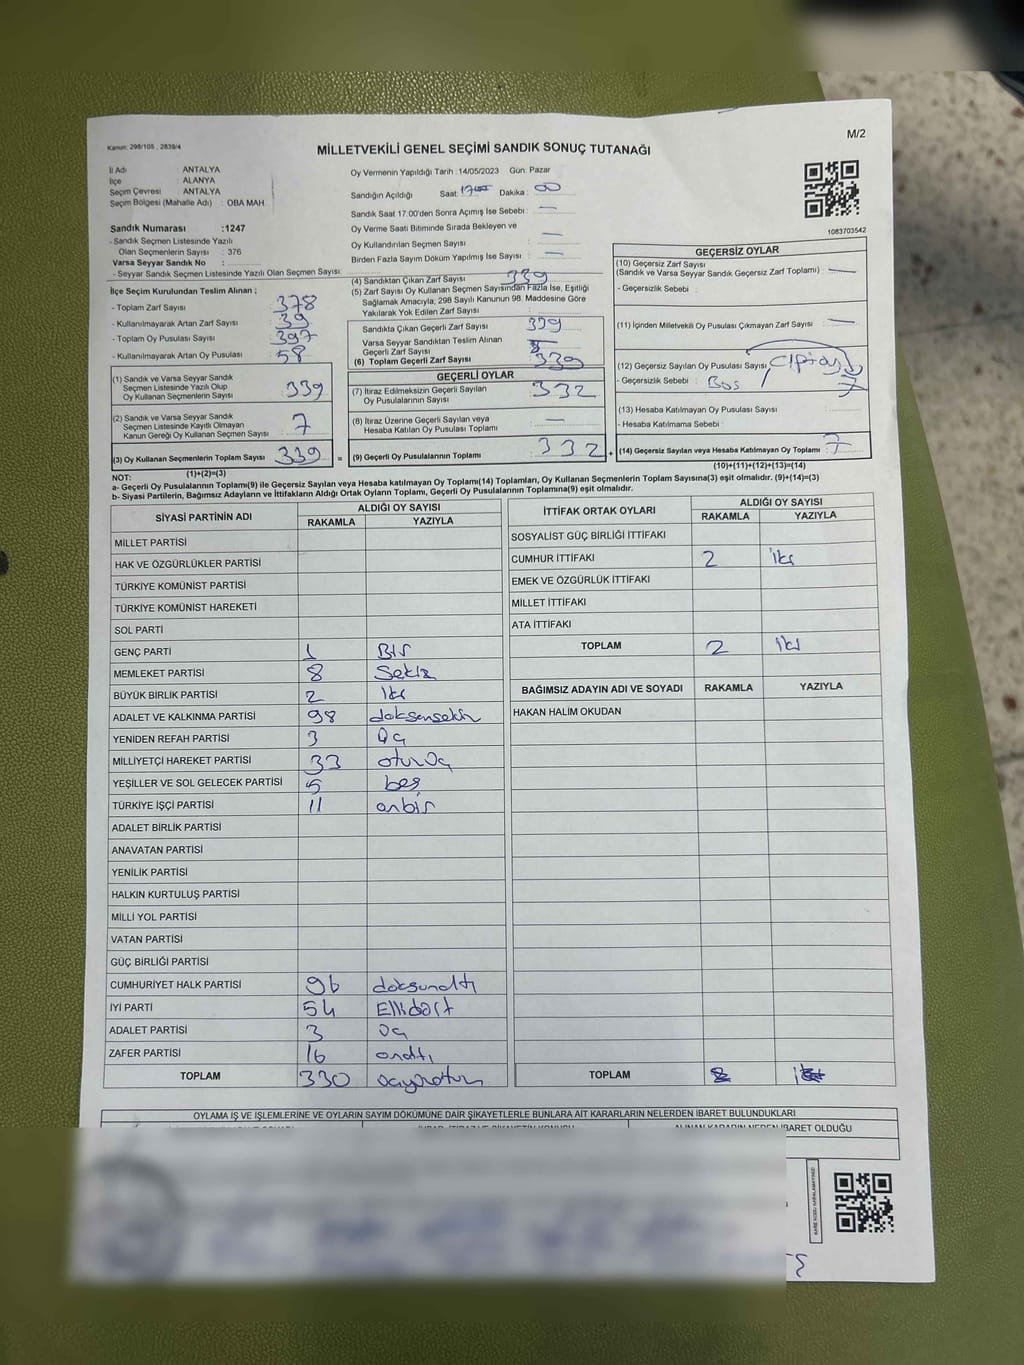 Kanun: 298/105 , 2839/4
M/2
MİLLETVEKİLİ GENEL SEÇİMİ SANDIK SONUÇ TUTANAĞI
İl Adı ANTALYA
İlçe ALANYA
Seçim Çevresi ANTALYA
Seçim Bölgesi (Mahalle Adı) : OBA MAH
Sandık Numarası :1247
- Sandık Seçmen Listesinde Yazılı
Olan Seçmenlerin Sayısı : 376
Varsa Seyyar Sandık No :
- Seyyar Sandık Seçmen Listesinde Yazılı Olan Seçmen Sayısı:
Oy Vermenin Yapıldığı Tarih : 14/05/2023 Gün: Pazar
Sandığın Açıldığı Saat: 17 Dakika : 00
Sandık Saat 17:00'den Sonra Açımış İse Sebebi : —
Oy Verme Saati Bitiminde Sırada Bekleyen ve
Oy Kullandırılan Seçmen Sayısı : —
Birden Fazla Sayım Döküm Yapılmış İse Sayısı : —
1083703542
İlçe Seçim Kurulundan Teslim Alınan ;
- Toplam Zarf Sayısı : 378
- Kullanılmayarak Artan Zarf Sayısı : 39
- Toplam Oy Pusulası Sayısı : 397
- Kullanılmayarak Artan Oy Pusulası : 58
(1) Sandık ve Varsa Seyyar Sandık
Seçmen Listesinde Yazılı Olup
Oy Kullanan Seçmenlerin Sayısı : 339
(2) Sandık ve Varsa Seyyar Sandık
Seçmen Listesinde Kayıtlı Olmayan
Kanun Gereği Oy Kullanan Seçmen Sayısı : 7
(3) Oy Kullanan Seçmenlerin Toplam Sayısı : 339
(1)+(2)=(3)
(4) Sandıktan Çıkan Zarf Sayısı : 339
(5) Zarf Sayısı Oy Kullanan Seçmen Sayısından Fazla İse, Eşitliği
Sağlamak Amacıyla, 298 Sayılı Kanunun 98. Maddesine Göre
Yakılarak Yok Edilen Zarf Sayısı :
Sandıkta Çıkan Geçerli Zarf Sayısı : 339
Varsa Seyyar Sandıktan Teslim Alınan
Geçerli Zarf Sayısı
(6) Toplam Geçerli Zarf Sayısı : 339
GEÇERLİ OYLAR
(7) İtiraz Edilmeksizin Geçerli Sayılan
Oy Pusulalarının Sayısı : 332
(8) İtiraz Üzerine Geçerli Sayılan veya
Hesaba Katılan Oy Pusulası Toplamı : —
= (9) Geçerli Oy Pusulalarının Toplamı : 332 +
GEÇERSİZ OYLAR
(10) Geçersiz Zarf Sayısı
(Sandık ve Varsa Seyyar Sandık Geçersiz Zarf Toplamı) : —
- Geçersizlik Sebebi :
(11) İçinden Milletvekili Oy Pusulası Çıkmayan Zarf Sayısı : —
(12) Geçersiz Sayılan Oy Pusulası Sayısı :
- Geçersizlik Sebebi : Bos 7
(13) Hesaba Katılmayan Oy Pusulası Sayısı :
- Hesaba Katılmama Sebebi :
(14) Geçersiz Sayılan veya Hesaba Katılmayan Oy Toplamı : 7
(10)+(11)+(12)+(13)=(14)
NOT:
a- Geçerli Oy Pusulalarının Toplamı(9) ile Geçersiz Sayılan veya Hesaba katılmayan Oy Toplamı(14) Toplamları, Oy Kullanan Seçmenlerin Toplam Sayısına(3) eşit olmalıdır. (9)+(14)=(3)
b- Siyasi Partilerin, Bağımsız Adayların ve İttifakların Aldığı Ortak Oyların Toplamı, Geçerli Oy Pusulalarının Toplamına(9) eşit olmalıdır.
SİYASİ PARTİNİN ADI ALDIĞI OY SAYISI
RAKAMLA YAZIYLA
MİLLET PARTİSİ
HAK VE ÖZGÜRLÜKLER PARTİSİ
TÜRKİYE KOMÜNİST PARTİSİ
TÜRKİYE KOMÜNİST HAREKETİ
SOL PARTİ
GENÇ PARTİ 1 Bir
MEMLEKET PARTİSİ 8 Sekiz
BÜYÜK BİRLİK PARTİSİ 2 İki
ADALET VE KALKINMA PARTİSİ 98 doksansekiz
YENİDEN REFAH PARTİSİ 3 Üç
MİLLİYETÇİ HAREKET PARTİSİ 33 otuzüç
YEŞİLLER VE SOL GELECEK PARTİSİ 5 beş
TÜRKİYE İŞÇİ PARTİSİ 11 onbir
ADALET BİRLİK PARTİSİ
ANAVATAN PARTİSİ
YENİLİK PARTİSİ
HALKIN KURTULUŞ PARTİSİ
MİLLİ YOL PARTİSİ
VATAN PARTİSİ
GÜÇ BİRLİĞİ PARTİSİ
CUMHURİYET HALK PARTİSİ 96 doksanaltı
İYİ PARTİ 54 Ellidört
ADALET PARTİSİ 3 üç
ZAFER PARTİSİ 16 onaltı
TOPLAM 330 üçyüzotuz
İTTİFAK ORTAK OYLARI ALDIĞI OY SAYISI
RAKAMLA YAZIYLA
SOSYALİST GÜÇ BİRLİĞİ İTTİFAKI
CUMHUR İTTİFAKI 2 iki
EMEK VE ÖZGÜRLÜK İTTİFAKI
MİLLET İTTİFAKI
ATA İTTİFAKI
TOPLAM 2 iki
BAĞIMSIZ ADAYIN ADI VE SOYADI RAKAMLA YAZIYLA
HAKAN HALİM OKUDAN
TOPLAM
OYLAMA İŞ VE İŞLEMLERİNE VE OYLARIN SAYIM DÖKÜMÜNE DAİR ŞİKAYETLERLE BUNLARA AİT KARARLARIN NELERDEN İBARET BULUNDUKLARI
ALINAN KARARIN NEDEN İBARET OLDUĞU